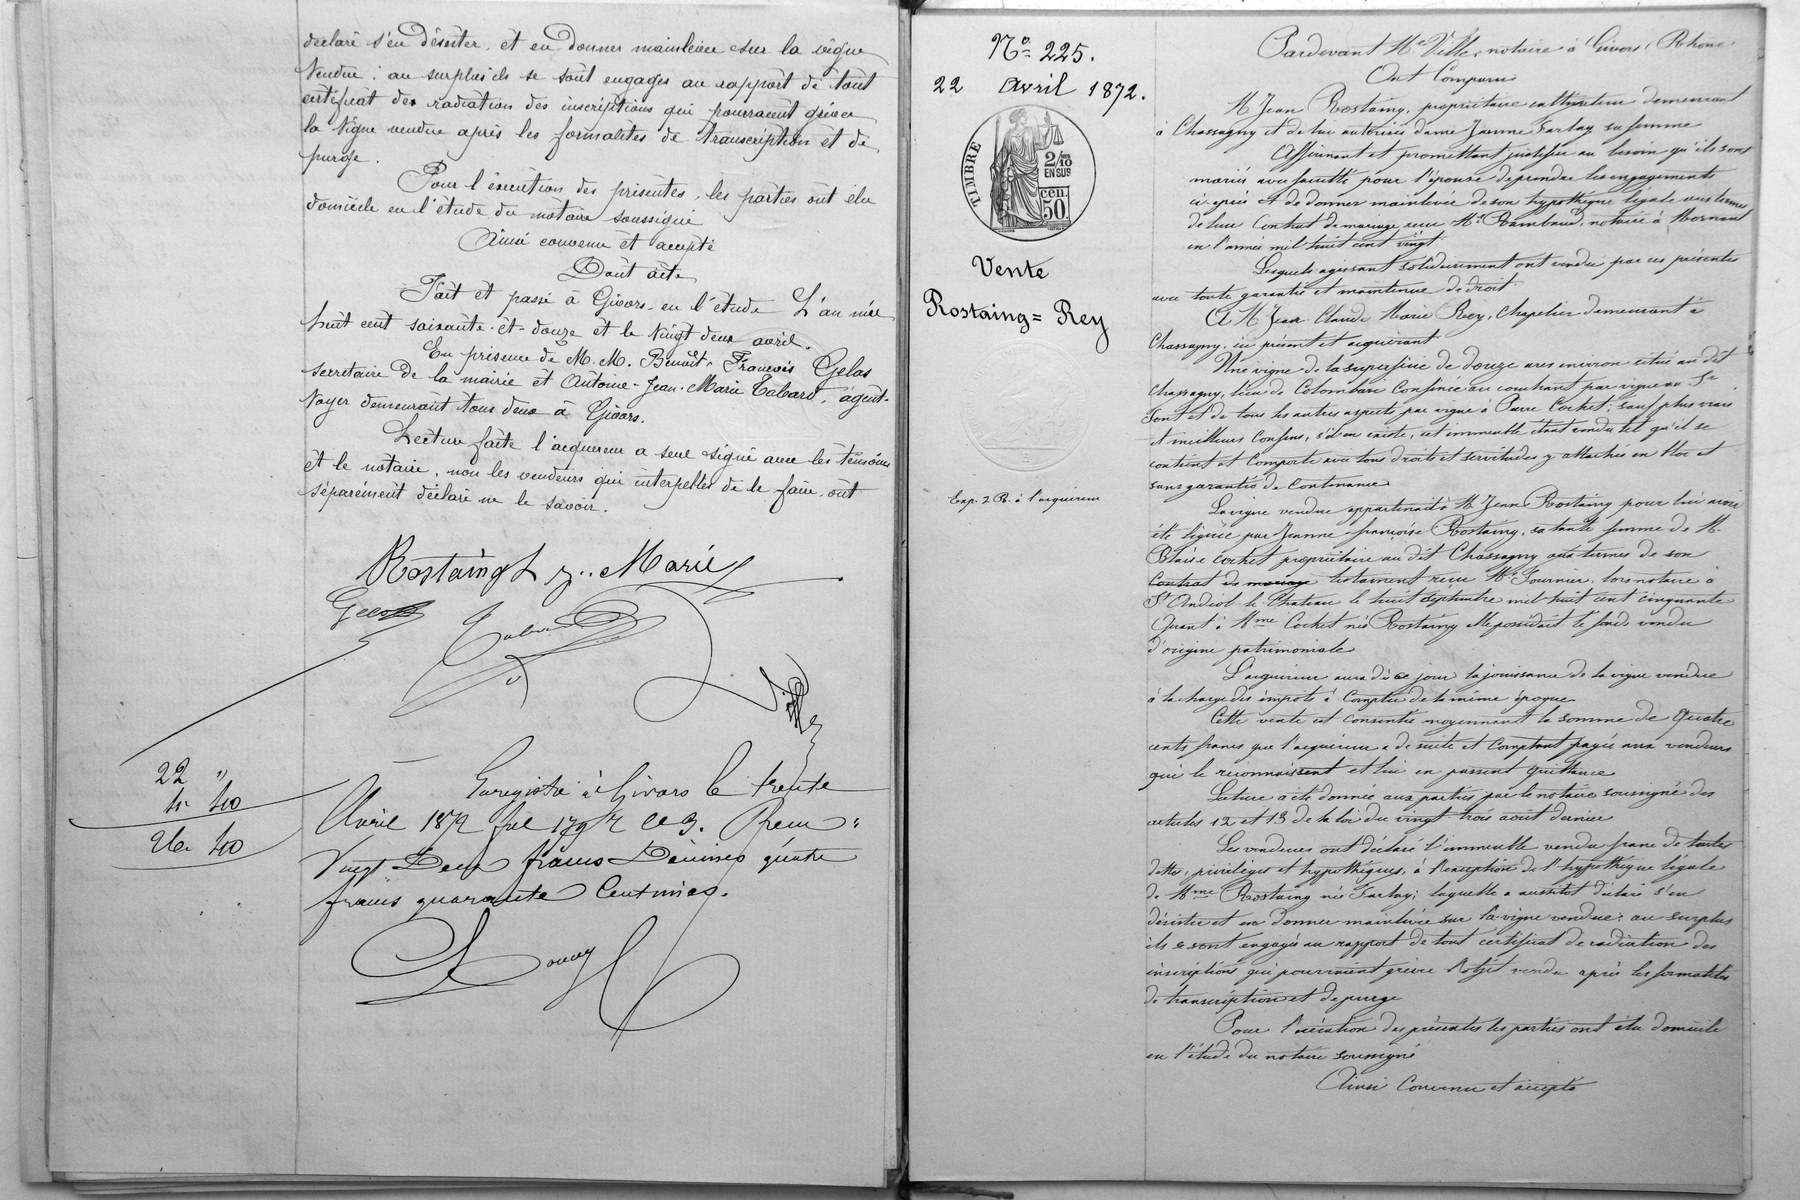 déclaré s'en désister, et en donner mainlevée sur la vigne
vendue : au surplus ils se sont engagés au rapport de tout
certificat des radiation des inscriptions qui pourraient grèver
la vigne vendue après les formalités de transcription et de
purge.
Pour l'éxécution des présentes, les parties ont élu
domicile en l'étude du notaire soussigné
Ainsi convenu et accepté
Dont acte
Fait et passé à Givors, en l'étude L'an mil
huit cent soixante-et-douze et le vingt deux avril.
En présence de M. M. Benoît-François Gelas
secrétaire de la mairie et Antoine-Jean-Marie Tabard, agent-
voyer demeurant tous deux à Givors.
Lecture faite l'acquéreur a seul signé avec les témoins
et le notaire, non les vendeurs qui interpellés de le faire, ont
séparément déclaré ne le savoir.
Rostaing Marie
Gelas
Tabard
Ville
22 "
4 40
26 40
Enregistré à Givors le trente
Avril 1872 fol 179 c 3. Reçu
Vingt Deux francs Décimes quatre
francs quarante Centimes.
No. 225.
22 Avril 1872.
TIMBRE
2/10
EN SUS
cen.
50.
Vente
Rostaing = Rey
Exp. 2 R. à l'acquéreur
Pardevant Me Ville, notaire à Givors (Rhône
Ont Comparu
M. Jean Rostaing, propriétaire cultivateur demeurant
à Chassagny et de lui autorisée dame Jeanne Farlay sa femme
Affirmant et promettant justifier au besoin qu'ils sont
mariés avec faculté pour l'épouse de prendre les engagements
ci-après et de donner mainlevée de son hypothèque légale aux termes
de leur Contrat de mariage reçu Me Rambaud, notaire à Mornant
en l'année mil huit cent vingt
Lesquels agissant solidairement ont vendu par ces présentes
avec toute garantie et maintenue de droit
A M. Jean Claude Marie Rey, Chapelier demeurant à
Chassagny, ici présent et acquérant
Une vigne de la superficie de douze ares environ située au dit
Chassagny, lieu de Colomban Confinée au couchant par vigne au Sr
Font et de tous les autres aspects par vigne à Pierre Cochet ; sauf plus vrais
et meilleurs Confins, s'il en existe, cet immeuble étant vendu tel qu'il se
contient et Comporte avec tous droits et servitudes y attachés en bloc et
sans garantie de Contenance
La vigne vendue appartenait à M. Jean Rostaing pour lui avoir
été léguée par Jeanne françoise Rostaing, sa tante femme de M.
Blaise Cochet propriétaire au dit Chassagny aux termes de son
Contrat de mariage testament reçu Me Fournier, lors notaire à
St Andéol le Château le huit septembre mil huit cent cinquante
Quant à Mme Cochet née Rostaing elle possédait le fonds vendu
d'origine patrimoniale
L'acquéreur aura dès ce jour la jouissance de la vigne vendue
à la charge des impots à Compter de la même époque
Cette vente est consentie moyennant la somme de Quatre
cents francs que l'acquéreur a de suite et Comptant payée aux vendeurs
qui le reconnaissent et lui en passent quittance
Lecture a été donnée aux parties par le notaire soussigné des
articles 12 et 13 de la loi du vingt trois août dernier
Les vendeurs ont déclaré l'immeuble vendu franc de toutes
dettes, privilèges et hypothèques, à l'exception de l'hypothèque légale
de Mme Rostaing née Farlay ; laquelle a aussitot déclaré s'en
désister et en donner mainlevée sur la vigne vendue ; au surplus
ils se sont engagés au rapport de tout certificat de radiation des
inscriptions qui pourraient grèver l'objet vendu après les formalités
de transcription et de purge
Pour l'exécution des présentes les parties ont élu domicile
en l'étude du notaire soussigné
Ainsi Convenu et accepté